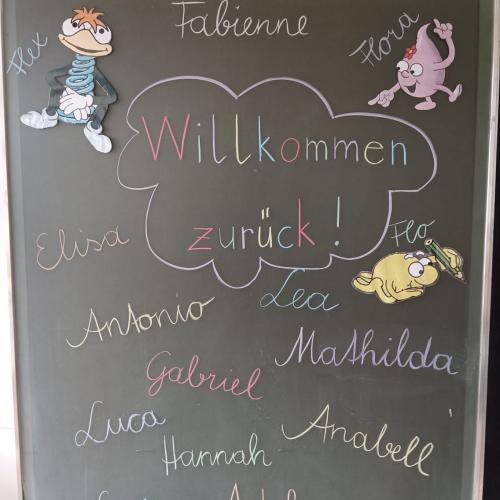 Fabienne
Flex
Flora
Willkommen
zurück!
Elisa
Flo
Lea
Antonio
Mathilda
Gabriel
Luca
Anabell
Hannah